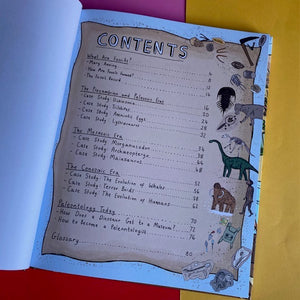 CONTENTS
What Are Fossils? 4
- Mary Anning 6
- How Are Fossils Formed? 8
- The Fossil Record
The Precambrian and Paleozoic Eras 16
- Case Study: Dickinsonia 20
- Case Study: Trilobites 24
- Case Study: Ammonites 28
- Case Study: 32
The Mesozoic Era 34
- Case Study: Morganucodon 38
- Case Study: Archaeopteryx 44
- Case Study: Maiasaurus 48
The Cenozoic Era 52
- Case Study: The Evolution of Whales 58
- Case Study: Terror Birds 62
- Case Study: The Evolution of Humans 68
Palaeontology Today 70
- How Does a Dinosaur Get to a Museum? 72
- How to Become a Palaeontologist 76
Glossary 80